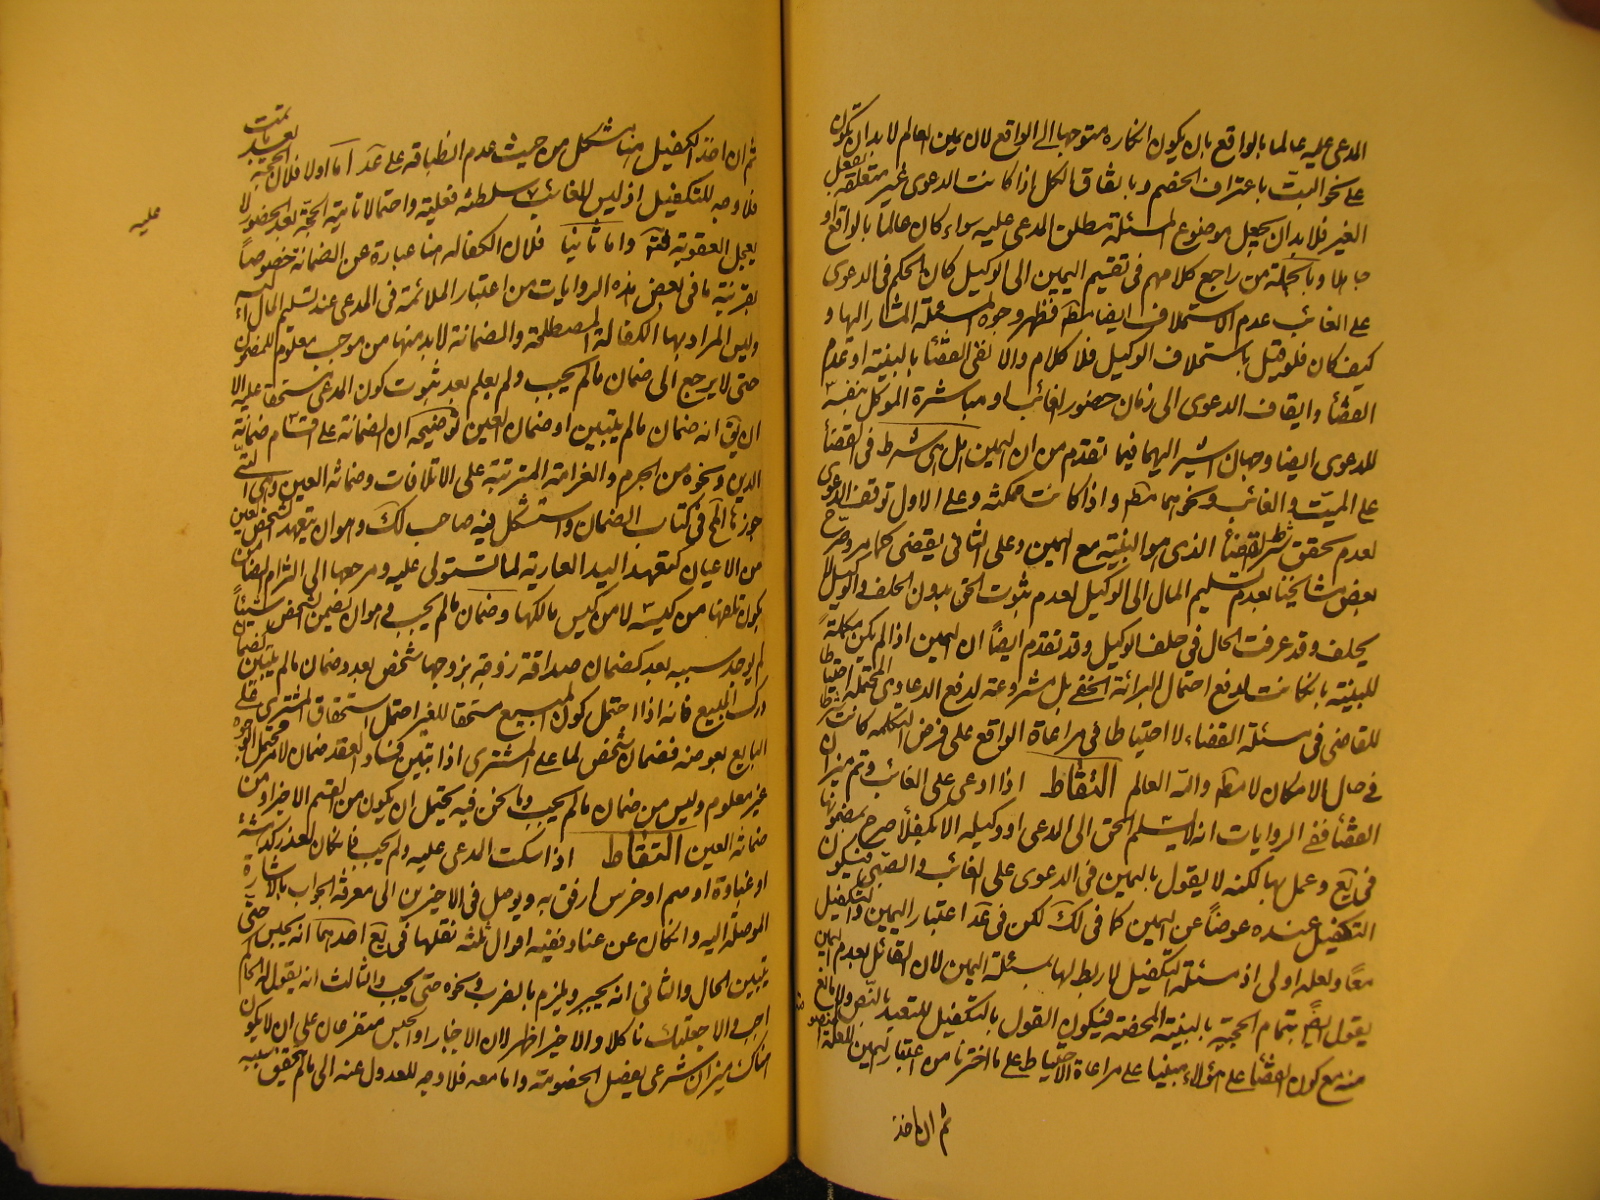 المدعى عليه عالما بالواقع بان يكون انكاره متوجها الى الواقع لان يمين العالم لابد ان تكون
على نحو البت باعتراف الخصم وباتفاق الكل اذا كانت الدعوى غير متعلقة بفعل
الغير فلا بد ان يجعل موضوع المسئلة مطلق المدعى عليه سواء كان عالما بالواقع او
جاهلا وبالجملة من راجع كلامهم فى تقتيم اليمين الى الوكيل كان الحكم فى الدعوى
على الغائب عدم الاستحلاف ايضا مطم فظهر وجوه المسئلة المشار اليها و
كيف كان فلو قيل باستحلاف الوكيل فلا كلام والا ففى القضأ بالبينة او عدم
القضأ وايقاف الدعوى الى زمان حضور الغائب او مباشرة الموكل بنفسه
للدعوى ايضا وجهان اشير اليهما فيما تقدم من ان اليمين هل هى شرط فى القضأ
على الميت والغائب ونحوهما مطم او اذا كانت ممكنة وعلى الاول توقف الدعوى
لعدم تحقق شرط القضأ الذى هو البينة مع اليمين وعلى الثانى يقضى كما مر وصرح
بعض مشايخنا بعدم تسليم المال الى الوكيل لعدم ثبوت الحق بدون الحلف والوكيل لا
يحلف وقد عرفت الحال فى حلف الوكيل وقد تقدم ايضاً ان اليمين اذا لم يكن مكملة
للبينة بل كانت لدفع احتمال البرائة الخفى بل مشروعة لدفع الدعاوى المحتملة احتياطا
للقاضى فى مسئلة القضاء لا احتياطا فى مراعاة الواقع على فرض التكلمة كانت
فى حال الامكان لا مطم والله العالم التقاط اذا ادعى على الغائب وتم ميزان
القضأ ففى الروايات انه لا يسلم الحق الى المدعى او وكيله الا بكفلأ صرح بمضمونها
فى يع وعمل بها لكنه لا يقول باليمين فى الدعوى على الغائب والصبى فيكون
التكفيل عنده عوضاً عن اليمين كما فى لك لكن فى عد اعتبار اليمين والتكفيل
معا ولعله اولى اذ مسئلة التكفيل لا ربط لها بمسئلة اليمين لان القائل بعدم اليمين
يقول ايضً بتمام الحجية بالبينة المحضة فيكون القول بالتكفيل للتعبد بالنص ولا مانع
منه مع كون القضأ على هؤلاء مبنيا على مراعاة الاحتياط على ما اخترنا من اعتبار اليمين للعلة المنصوصة
ثم ان اخذ
ثم ان اخذ الكفيل هنا مشكل من حيث عدم انطباقه على عد اما اولا فلان الحجية بعد ما تمت
فلا وجه للتكفيل اذ ليس للغائب سلطنة فعلية واحتمال اتاتية الحجة بعد الحضور لا
يعجل العقوبة واما ثانيا فلان الكفاله هنا عبارة عن الضمانة خصوصاً
بقرينة ما فى بعض هذه الروايات من اعتبار الملائمة فى المدعى عند تسليم المال اليه
وليس المراد بها الكفالة المصطلحة والضمانة لابد منها من موجب معلوم للمضمون
عليه
حتى لا يرجع الى ضمان مالم يجب ولم يعلم بعد ثبوت كون المدعى مستحقا عليه الا
ان يق انه ضمان مالم يتبين او ضمان العين توضيحه ان الضمانة على اقسام ضمانة
الدين ونحوه من الجرم والغرامة المترتبة على الاتلافات وضمانة العين وهى التى
جوزها فى كتاب الضمان واستشكل فيه صاحب لك وهو ان يتعهد لشخص العين
من الاعيان كتعهد اليد العارية لما تستولى عليه ومرجعها الى التزام الضامن
بكون تلفها من كيسه لا من كيس مالكها وضمان مالم يجب هو ان يضمن لشخص شيئاً
لم يوجد سببه بعد كضمان صداقة زوجة يزوجها شخص بعد وضمان مالم يتبين كضمان
درك المبيع فانه اذا احتمل كون المبيع مستحقا للغير احتمل استحقاق المشترى على
البايع بعوضه فضمان شخص لما على المشترى اذا تبين فساد العقد ضمان لامر محتمل الوجوه
غير معلوم وليس من ضمان مالم يجب وما نحن فيه يحتمل ان يكون من القسم الاخير او من
ضمانة العين التقاط اذا سكت المدعى عليه ولم يجب فان كان لعذر كدهشة
او غباوة او صمم او خرس ارفق به ويوصل فى الاخيرين الى معرفة الجواب بالاشارة
الموصلة اليه وان كان عن عناد ففيه اقوال ثلثه نقلها فى يع احدهما انه يحبس حتى
يتبين الحال والثانى انه يجبر ويلزم بالضرب ونحوه حتى يجيب والثالث انه يقول له الحاكم
اجب والا جعلتك ناكلا والاخير اظهر لان الاجبار او الحبس متفرعان على ان لا يكون
هناك ميزان شرعى يفصل الخصومة واما معه فلا وجه للعدول عنه الى مالم يتحقق سببه